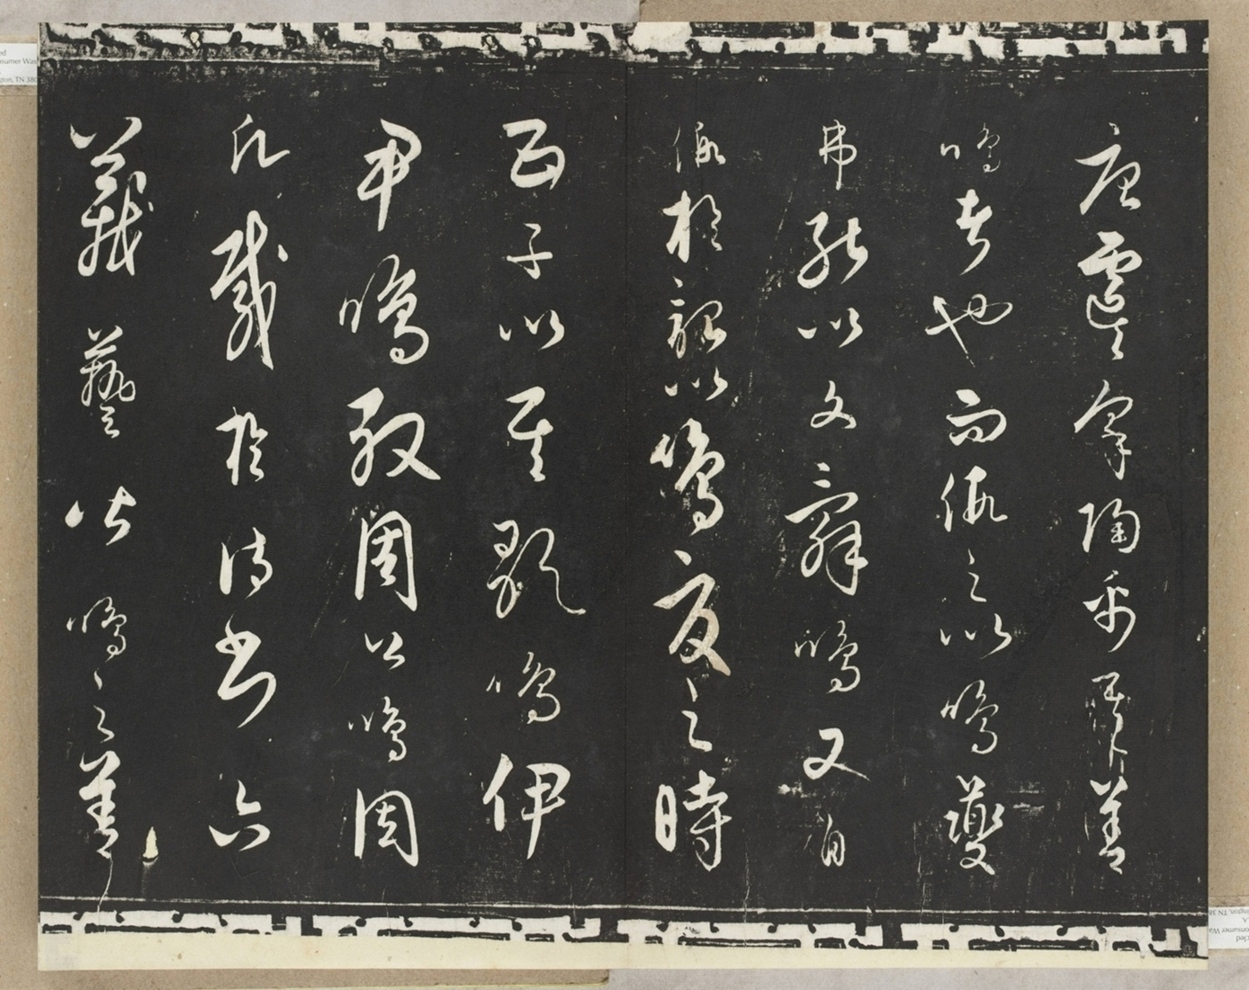 唐虞咎陶禹其善
鳴者也而假之以鳴夔
弗能以文辭鳴又自
假於韶以鳴夏之時
五子以其歌鳴伊
尹鳴殷周公鳴周
凡載於詩書六
義藝皆鳴之善